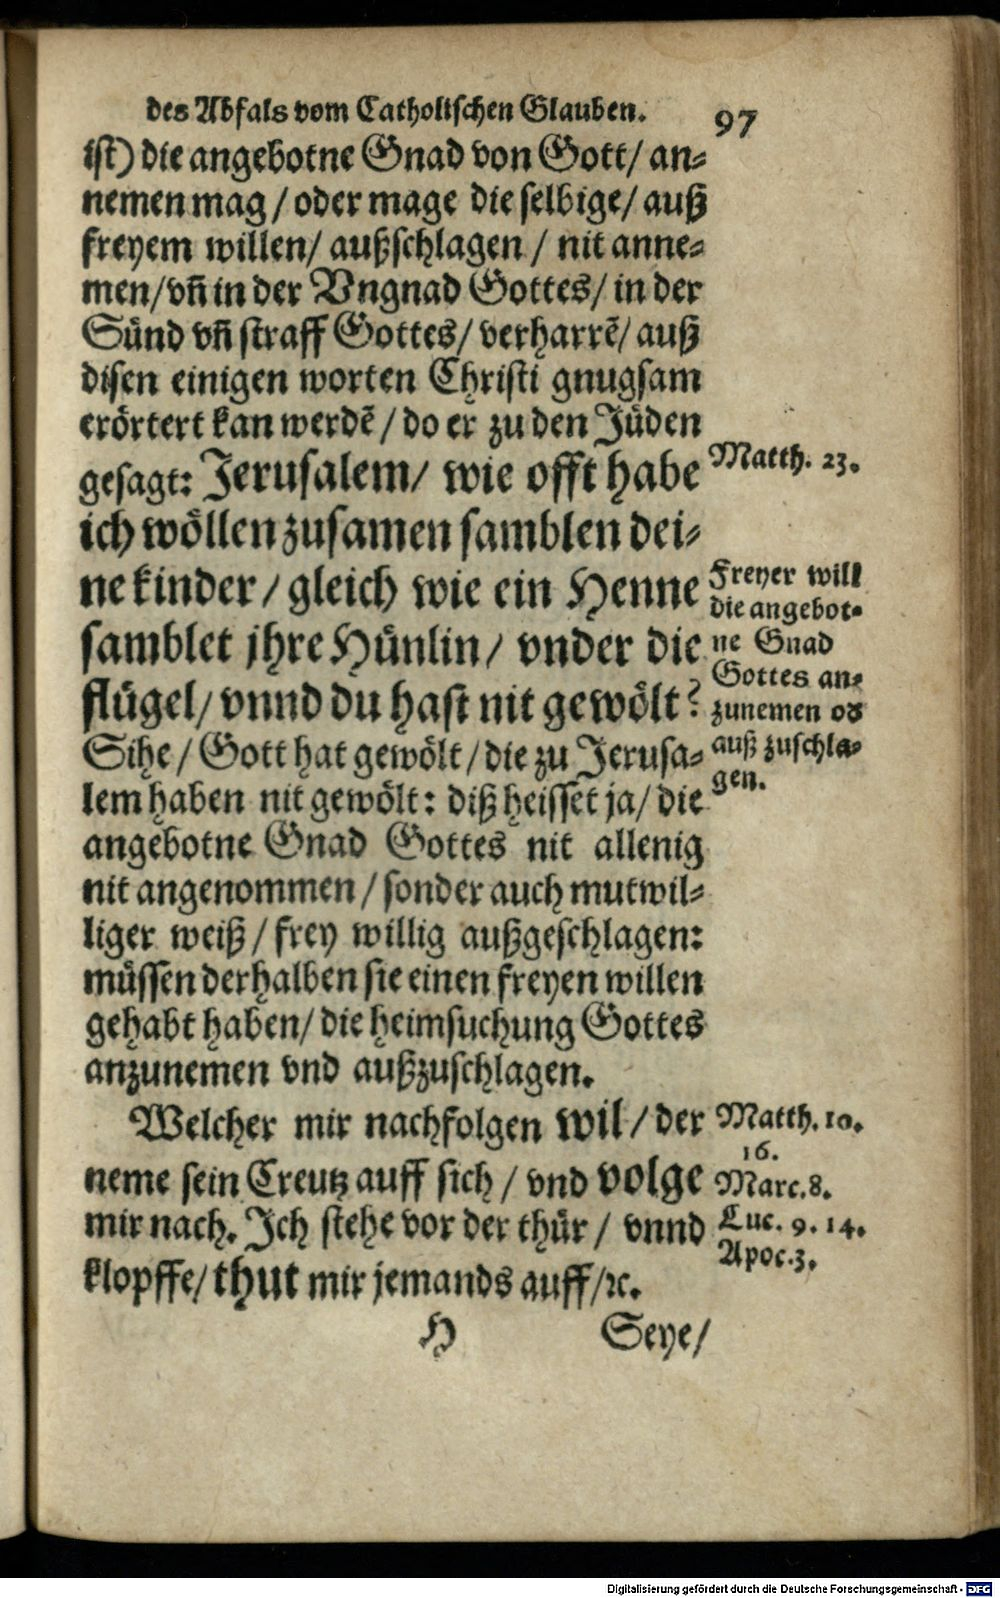 des Abfals vom Catholischen Glauben. 97
ist) die angebotne Gnad von Gott/ an-
nemen mag / oder mage die selbige/ auß
freyem willen/ außschlagen / nit anne-
men/ vñ in der Vngnad Gottes/ in der
Sünd vñ straff Gottes/ verharrẽ/ auß
disen einigen worten Christi gnugsam
erörtert kan werdẽ / do er zu den Jüden
gesagt: Jerusalem/ wie offt habe
Matth. 23.
ich wöllen zusamen samblen dei-
ne kinder / gleich wie ein Henne
samblet jhre Hünlin/ vnder die
flügel/ vnnd du hast nit gewölt?
Freyer will
die angebot-
ne Gnad
Gottes an-
zunemen od
auß zuschla-
gen.
Sihe / Gott hat gewölt / die zu Jerusa-
lem haben nit gewölt: diß heisset ja/ die
angebotne Gnad Gottes nit allenig
nit angenommen / sonder auch mutwil-
liger weiß / frey willig außgeschlagen:
müssen derhalben sie einen freyen willen
gehabt haben/ die heimsuchung Gottes
anzunemen vnd außzuschlagen.
Welcher mir nachfolgen wil / der
neme sein Creutz auff sich / vnd volge
mir nach. Ich stehe vor der thür / vnnd
klopffe/ thut mir jemands auff/ ꝛc.
Matth. 10.
16.
Marc. 8.
Luc. 9. 14.
Apoc. 3.
H Seye/
Digitalisierung gefördert durch die Deutsche Forschungsgemeinschaft - DFG